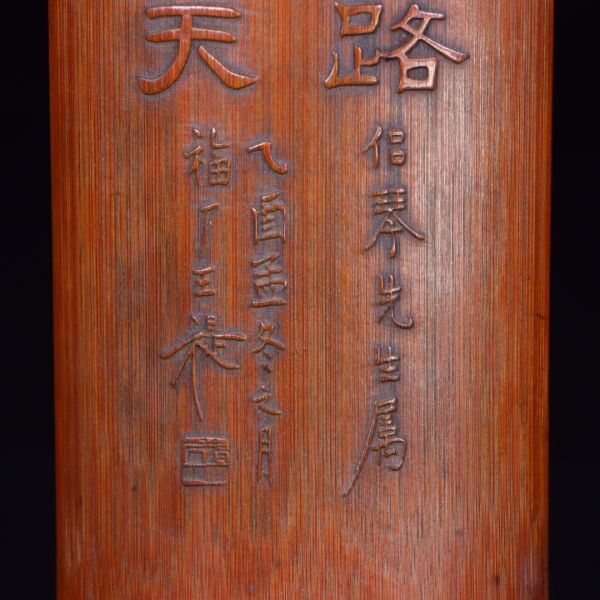 路
侣琴先生属
天
乙酉孟冬之月
福厂王禔